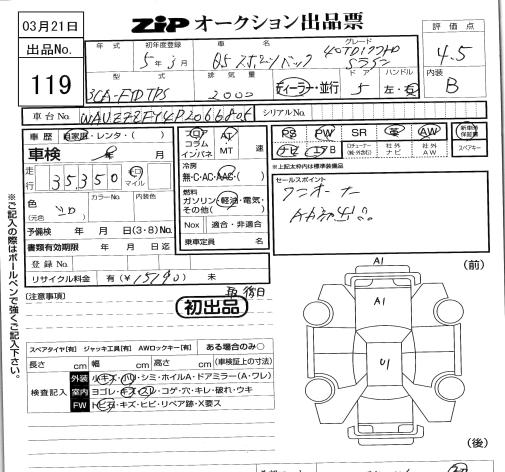 03月21日
ZiP オークション出品票
評価点
4.5
出品No.
119
年式
初年度登録
5年 3月
車名
Q5 スポーツバック
グレード
40TDIクワトロ
Sライン
型式
3CA-FYDTPS
排気量
2000
ディーラー・並行
ドア
5
ハンドル
左・右
内装
B
車台No.
シリアルNo.
車歴 自家用・レンタ・( )
車検 年 月
走行 35350 キロ マイル
色 (元色)
カラーNo.
内装色
予備検 年 月 日(3・8)No.
書類有効期限 年 月 日迄
登録No.
リサイクル料金 有(¥15190) 未
フロア コラム インパネ
AT MT 速
冷房
無・C・AC・AAC・( )
燃料
ガソリン・軽油・電気・その他( )
Nox 適合・非適合
乗車定員 名
PS PW SR 革 AW
ナビ エアB
ロチューナー(純・外含む)
社外ナビ
社外AW
新車時保証書
スペアキー
※上記太枠内は標準装備品
セールスポイント
ワンオーナー
AA初出品
[注意事項]
取 後日
初出品
スペアタイヤ[有] ジャッキ工具[有] AWロックキー[有] ある場合のみ〇
長さ cm 幅 cm 高さ cm (車検証上の寸法)
検査記入
外装 小キズ・凹・シミ・ホイルA・ドアミラー(A・ワレ)
室内 ヨゴレ・キズ・スレ・コゲ・穴・キレ・破れ・ウキ
FW トビ石・キズ・ヒビ・リペア跡・X要ス
※ご記入の際はボールペンで強くご記入下さい。
A1
(前)
A1
U1
(後)